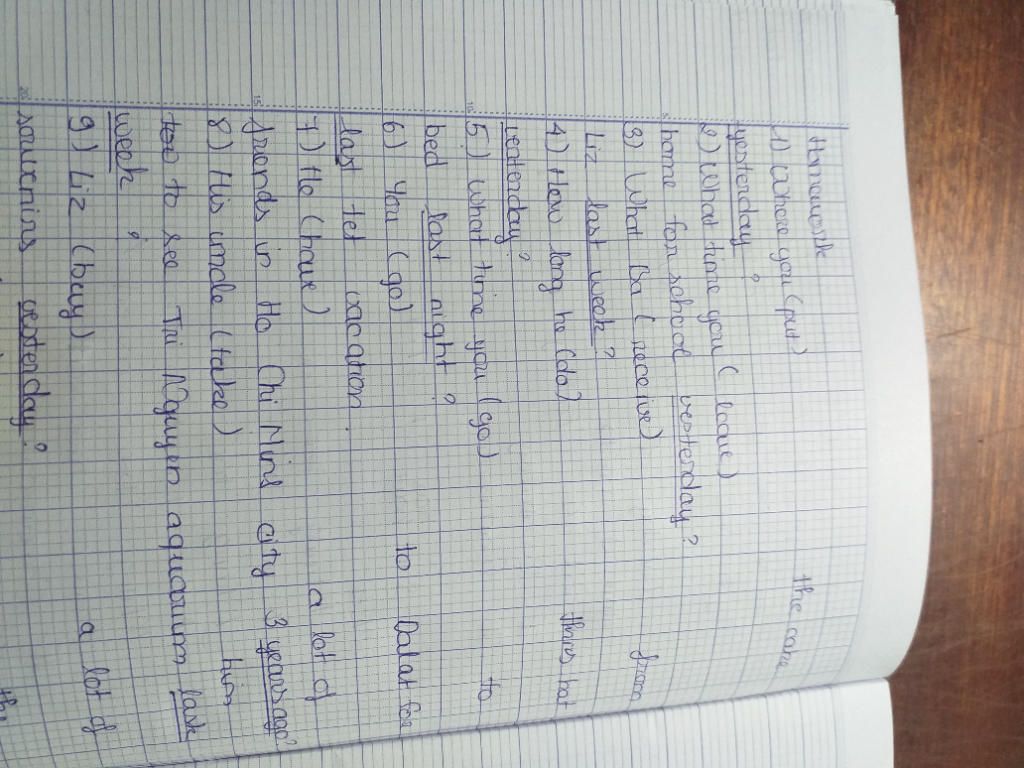 Homework
1) Where you (put) the cake
yesterday ?
2) What time you ( leave)
home for school yesterday ?
3) What Ba ( receive) from
Liz last week ?
4) How long he (do) this hat
yesterday ?
5) What time you (go) to
bed last night ?
6) You (go) to Dalat for
last tet vacation.
7) Ho (have) a lot of
friends in Ho Chi Minh city 3 years ago?
8) His uncle (take) him
to to see Tri Nguyen aquarium last
week ?
9) Liz (buy) a lot of
souvenirs yesterday ?
the